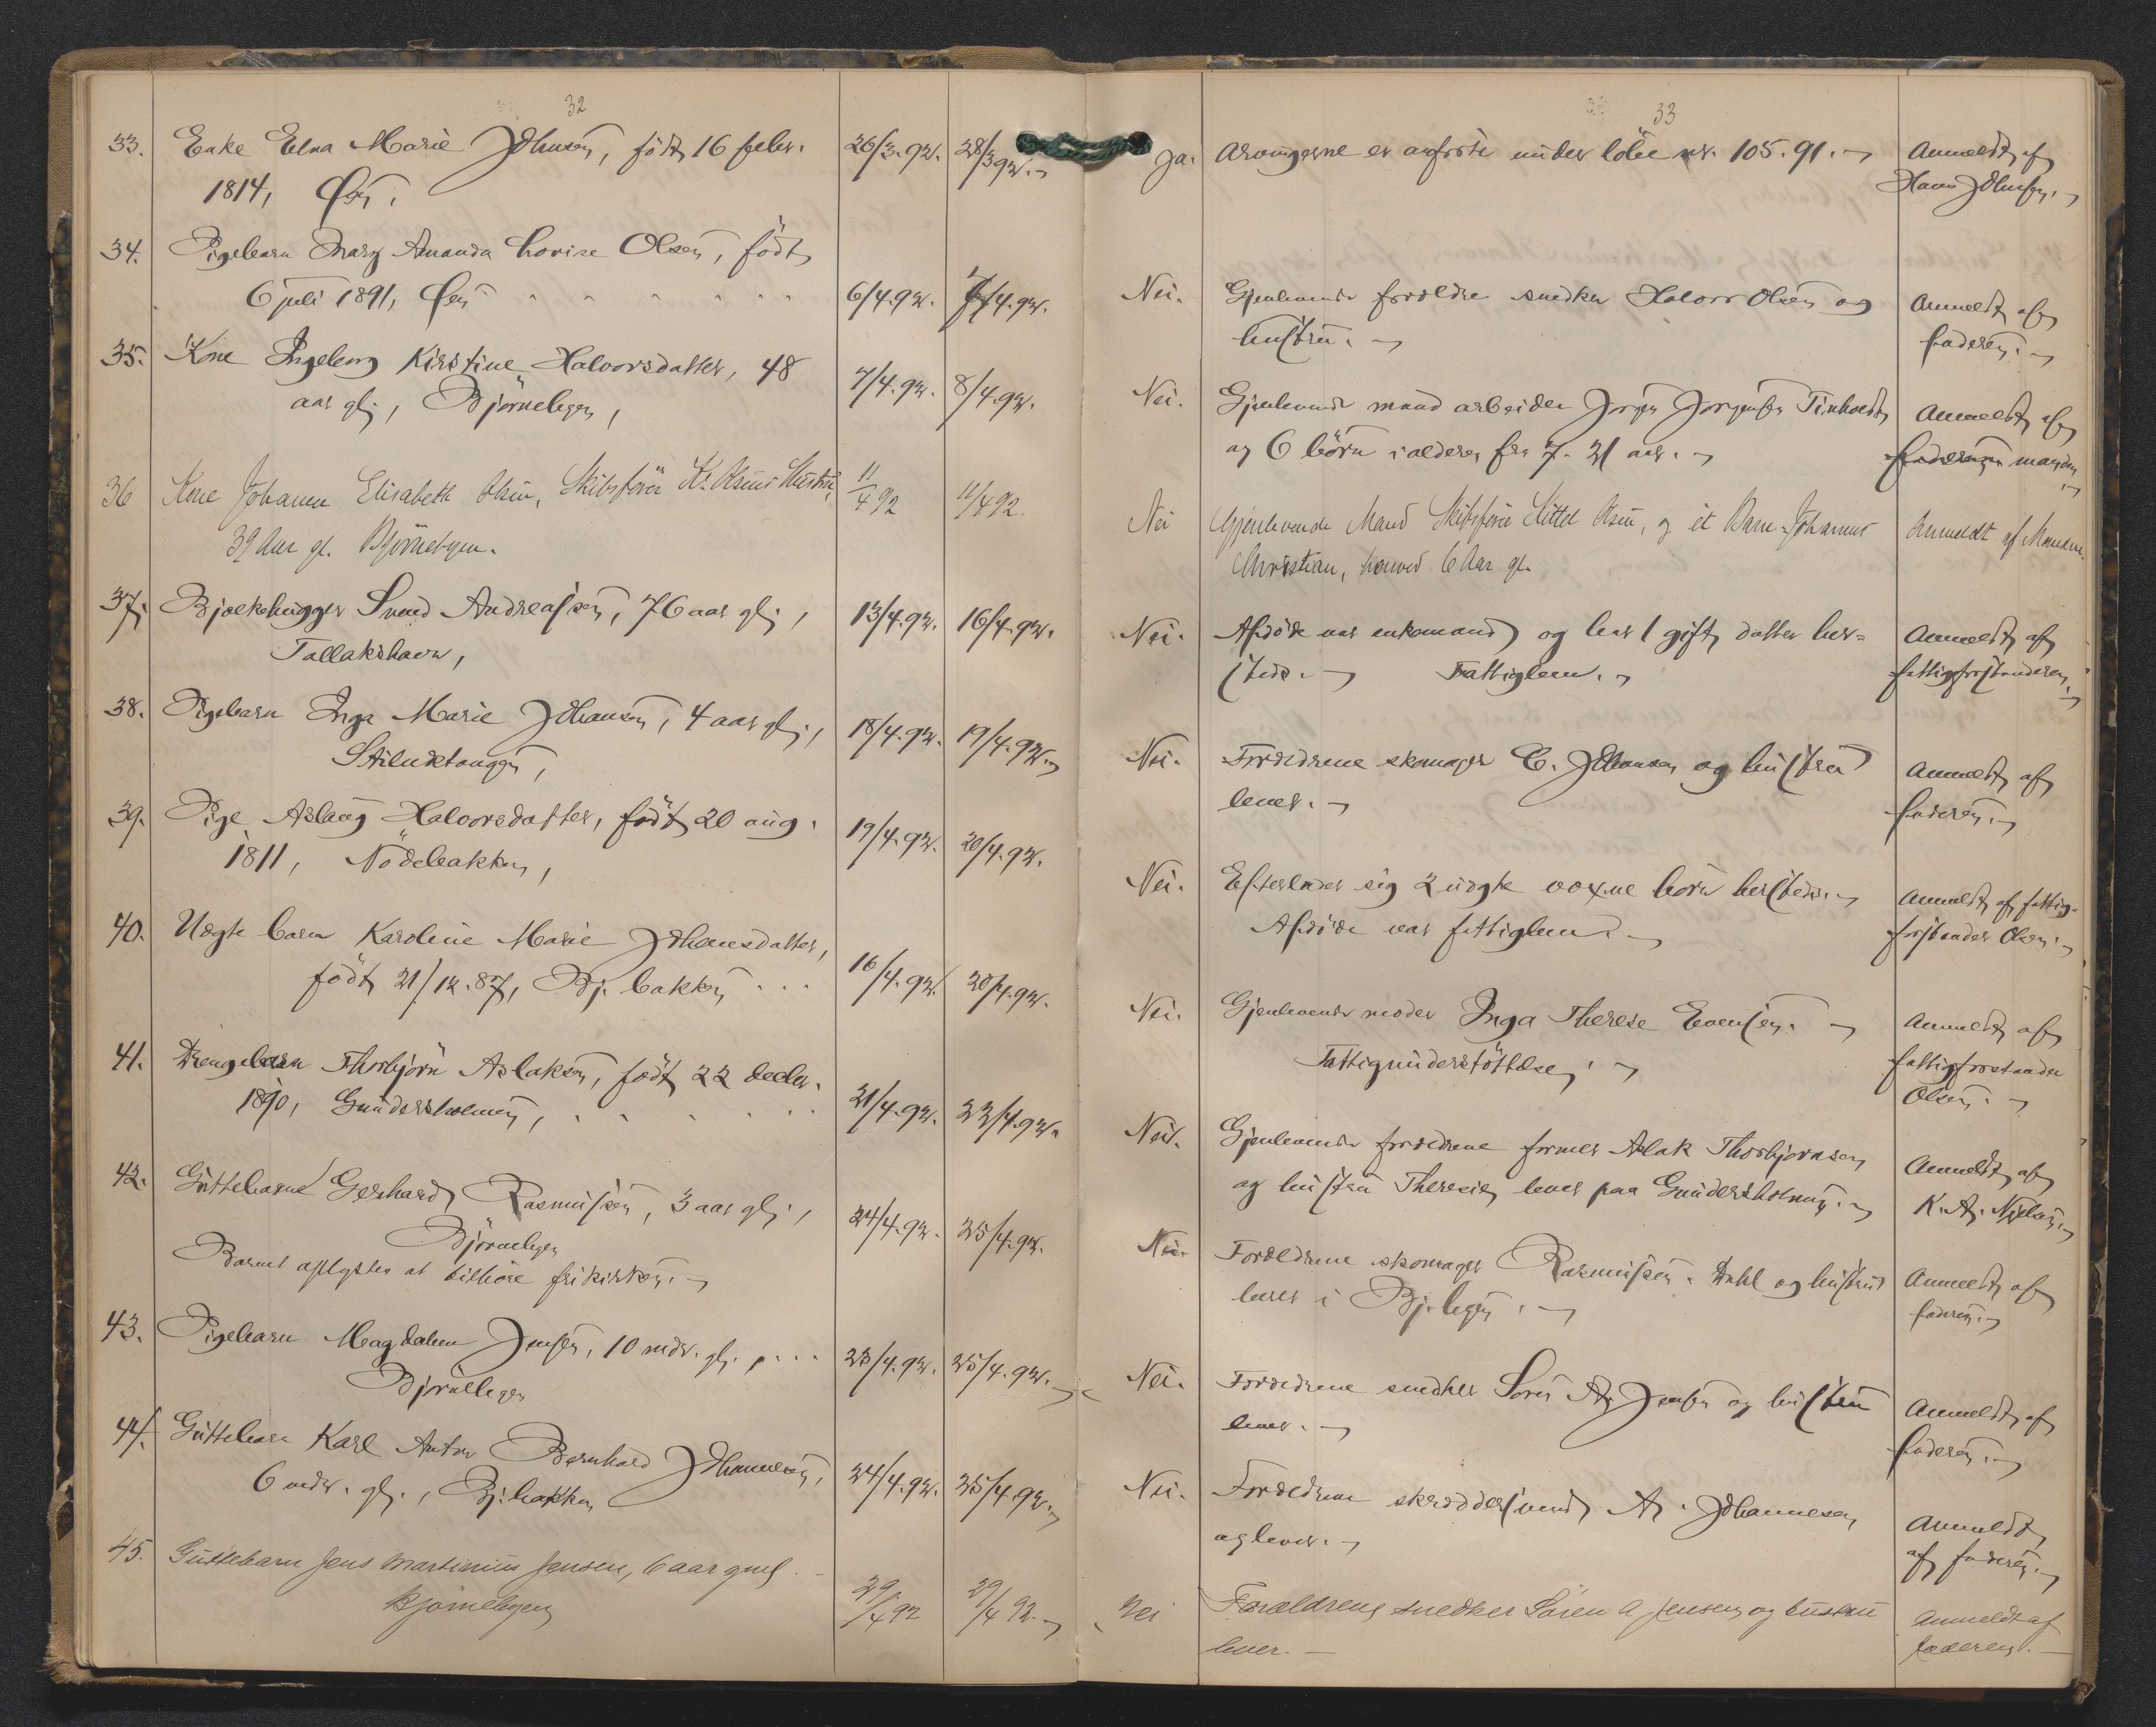 32
33. Enke Elna Marie Johnsen, født 16 febr. 26/3.92. 28/3 92.
1814, Øen.
34. Pigebarn Mary Amanda Lovise Olsen, født
6 juli 1891, Øen 6/4.92. 7/4.92.
35. Kone Ingeborg Kirstine Halvorsdatter, 48 7/4.92. 8/4.92.
aar gl., Bjørnebyen,
36 Kone Johanne Elisabeth Olsen, Skibsfører K. Olsens Hustru, 11/4 92 11/4 92.
39 Aar gl. Bjørnebyen.
37. Bjælkehugger Svend Andreassen, 76 aar gl., 13/4.92. 16/4.92.
Tallakshavn,
38. Pigebarn Inga Marie Johansen, 4 aar gl., 18/4.92. 19/4.92.
Stilnestangen,
39. Pige Aslaug Halvorsdatter, født 20 aug. 19/4.92. 20/4.92.
1811, Nødebakken,
40. Uægte barn Karoline Marie Johansdatter,
født 21/12.87, Bj. bakken 16/4.92. 20/4.92.
41. Drengebarn Thorbjørn Aslaksen, født 22 decbr.
1890, Gundersholmen, 21/4.92. 22/4.92.
42. Guttebarnet Gerhard Rasmussen, 3 aar gl., 24/4.92. 25/4.92.
Bjørnebyen
Barnet oplystes at tilhøre frikirken.
43. Pigebarn Magdalene Jensen, 10 mdr. gl. 23/4.92. 25/4.92.
Bjørnebyen
44. Guttebarn Karl Anton Bernhard Johannesen, 24/4.92. 25/4.92.
6 mdr. gl., Bj. bakken
45. Guttebarn Jens Martinius Jensen, 6 aar gml. 29/4 92 29/4 92.
Bjørnebyen
33
Ja. Arvingerne er anførte under løbe nr. 105.91. Anmeldt af
Hans Johnsen.
Nei. Gjenlevende forældre snedker Halvor Olsen og Anmeldt af
hustru. faderen.
Nei. Gjenlevende mand arbeider Jørgen Jørgensen Anmeldt af
og 6 børn i alderen fra 7-21 aar. faderen manden
Nei Gjenlevende Mand Skibsfører Kittel Olsen, og et Barn Johannes Anmeldt af Manden.
Christian, henved 6 Aar gl.
Nei. Afdøde var enkemand og har 1 gift datter her- Anmeldt af
steds. Fattiglem. fattigforstanderen.
Nei. Forældrene skomager C. Johansen og hustru Anmeldt af
lever. faderen.
Nei. Efterlader sig 2 uægte voxne børn hersteds. Anmeldt af fattig-
Afdøde var fattiglem. forstander Olsen.
Nei. Gjenlevende moder Inga Therese Evensen. Anmeldt af
Fattigunderstøttelse. fattigforstander
Olsen.
Nei. Gjenlevende forældrene former Aslak Thorbjørnsen Anmeldt af
og hustru Theresie, lever paa Gundersholmen. K. A. Nielsen.
Nei. Forældrene skomager Rasmussen Dahl og hustru Anmeldt af
lever i Bj. byen. faderen.
Nei. Forældrene snedker Søren A. Jensen og hustru Anmeldt af
lever. faderen.
Nei. Forældrene skræddersvend A. Johannesen Anmeldt
og lever. af faderen.
Nei Forældrene snedker Søren A Jensen og hustru Anmeldt af
lever. faderen.